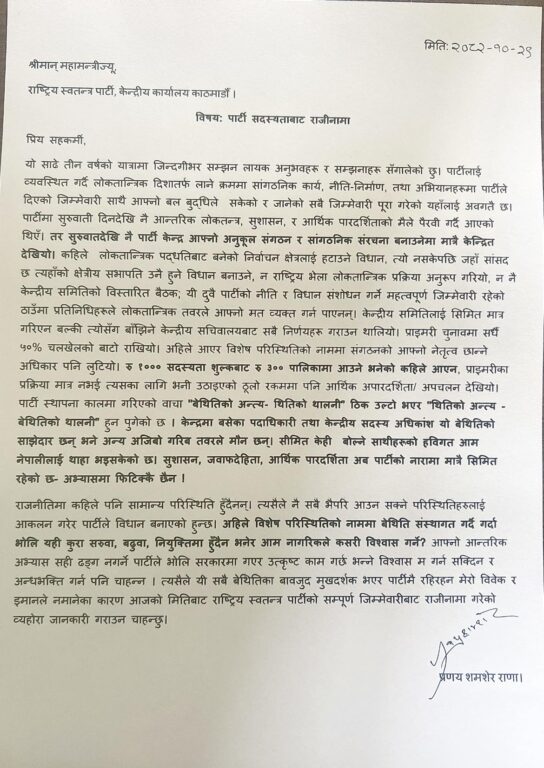 मिति: २०८२-१०-२९
श्रीमान् महामन्त्रीज्यू,
राष्ट्रिय स्वतन्त्र पार्टी, केन्द्रीय कार्यालय काठमाडौँ ।
विषय: पार्टी सदस्यताबाट राजीनामा
प्रिय सहकर्मी,
यो साढे तीन वर्षको यात्रामा जिन्दगीभर सम्झन लायक अनुभवहरू र सम्झनाहरू सँगालेको छु। पार्टीलाई
व्यवस्थित गर्दै लोकतान्त्रिक दिशातर्फ लाने क्रममा सांगठनिक कार्य, नीति-निर्माण, तथा अभियानहरूमा पार्टीले
दिएको जिम्मेवारी साथै आफ्नो बल बुद्धिले सकेको र जानेको सबै जिम्मेवारी पूरा गरेको यहाँलाई अवगतै छ।
पार्टीमा सुरुवाती दिनदेखि नै आन्तरिक लोकतन्त्र, सुशासन, र आर्थिक पारदर्शिताको मैले पैरवी गर्दै आएको
थिएँ। तर सुरुवातदेखी नै पार्टी केन्द्र आफ्नो अनुकूल संगठन र सांगठनिक संरचना बनाउनेमा मात्रै केन्द्रित
देखियो। कहिले लोकतान्त्रिक पद्धतिबाट बनेको निर्वाचन क्षेत्रलाई हटाउने विधान, त्यो नसकेपछि जहाँ सांसद
छ त्यहाँको क्षेत्रीय सभापति उनै हुने विधान बनाउने, न राष्ट्रिय भेला लोकतान्त्रिक प्रक्रिया अनुरूप गरियो, न नै
केन्द्रीय समितिको विस्तारित बैठक; यी दुवै पार्टीको नीति र विधान संशोधन गर्ने महत्वपूर्ण जिम्मेवारी रहेको
ठाउँमा प्रतिनिधिहरूले लोकतान्त्रिक तवरले आफ्नो मत व्यक्त गर्न पाएनन्। केन्द्रीय समितिलाई सिमित मात्र
गरिएन बल्की त्योसँग बाँझिने केन्द्रीय सचिवालयबाट सबै निर्णयहरू गराउन थालियो। प्राइमरी चुनावमा सधैँ
५०% चलखेलको बाटो राखियो। अहिले आएर विशेष परिस्थितिको नाममा संगठनको आफ्नो नेतृत्व छान्ने
अधिकार पनि लुटियो। रु १००० सदस्यता शुल्कबाट रु ३०० पालिकामा आउने भनेको कहिले आएन, प्राइमरीका
प्रक्रिया मात्र नभई त्यसका लागि भनी उठाइएको ठूलो रकममा पनि आर्थिक अपारदर्शिता/ अपचलन देखियो।
पार्टी स्थापना कालमा गरिएको वाचा "बेथितिको अन्त्य- थितिको थालनी" ठिक उल्टो भएर "थितिको अन्त्य -
बेथितिको थालनी" हुन पुगेको छ । केन्द्रमा बसेका पदाधिकारी तथा केन्द्रीय सदस्य अधिकांश यो बेथितिको
साझेदार छन् भने अन्य अजिबो गरिब तवरले मौन छन्। सीमित केही बोल्ने साथीहरूको हविगत आम
नेपालीलाई थाहा भइसकेको छ। सुशासन, जवाफदेहिता, आर्थिक पारदर्शिता अब पार्टीको नारामा मात्रै सिमित
रहेको छ- अभ्यासमा फिटिक्कै छैन ।
राजनीतिमा कहिले पनि सामान्य परिस्थिति हुँदैनन्। त्यसैले नै सबै भैपरि आउन सक्ने परिस्थितिहरुलाई
आकलन गरेर पार्टीले विधान बनाएको हुन्छ। अहिले विशेष परिस्थितिको नाममा बेथिति संस्थागत गर्दै गर्दा
भोलि यही कुरा सरुवा, बढुवा, नियुक्तिमा हुँदैन भनेर आम नागरिकले कसरी विश्वास गर्ने? आफ्नो आन्तरिक
अभ्यास सही ढङ्ग नगर्ने पार्टीले भोलि सरकारमा गएर उत्कृष्ट काम गर्छ भन्ने विश्वास म गर्न सक्दिन र
अन्धभक्ति गर्न पनि चाहन्न । त्यसैले यी सबै बेथितिका बावजुद मुखदर्शक भएर पार्टीमै रहिरहन मेरो विवेक र
इमानले नमानेका कारण आजको मितिबाट राष्ट्रिय स्वतन्त्र पार्टीको सम्पूर्ण जिम्मेवारीबाट राजीनामा गरेको
व्यहोरा जानकारी गराउन चाहन्छु।
प्रणय शमशेर राणा।